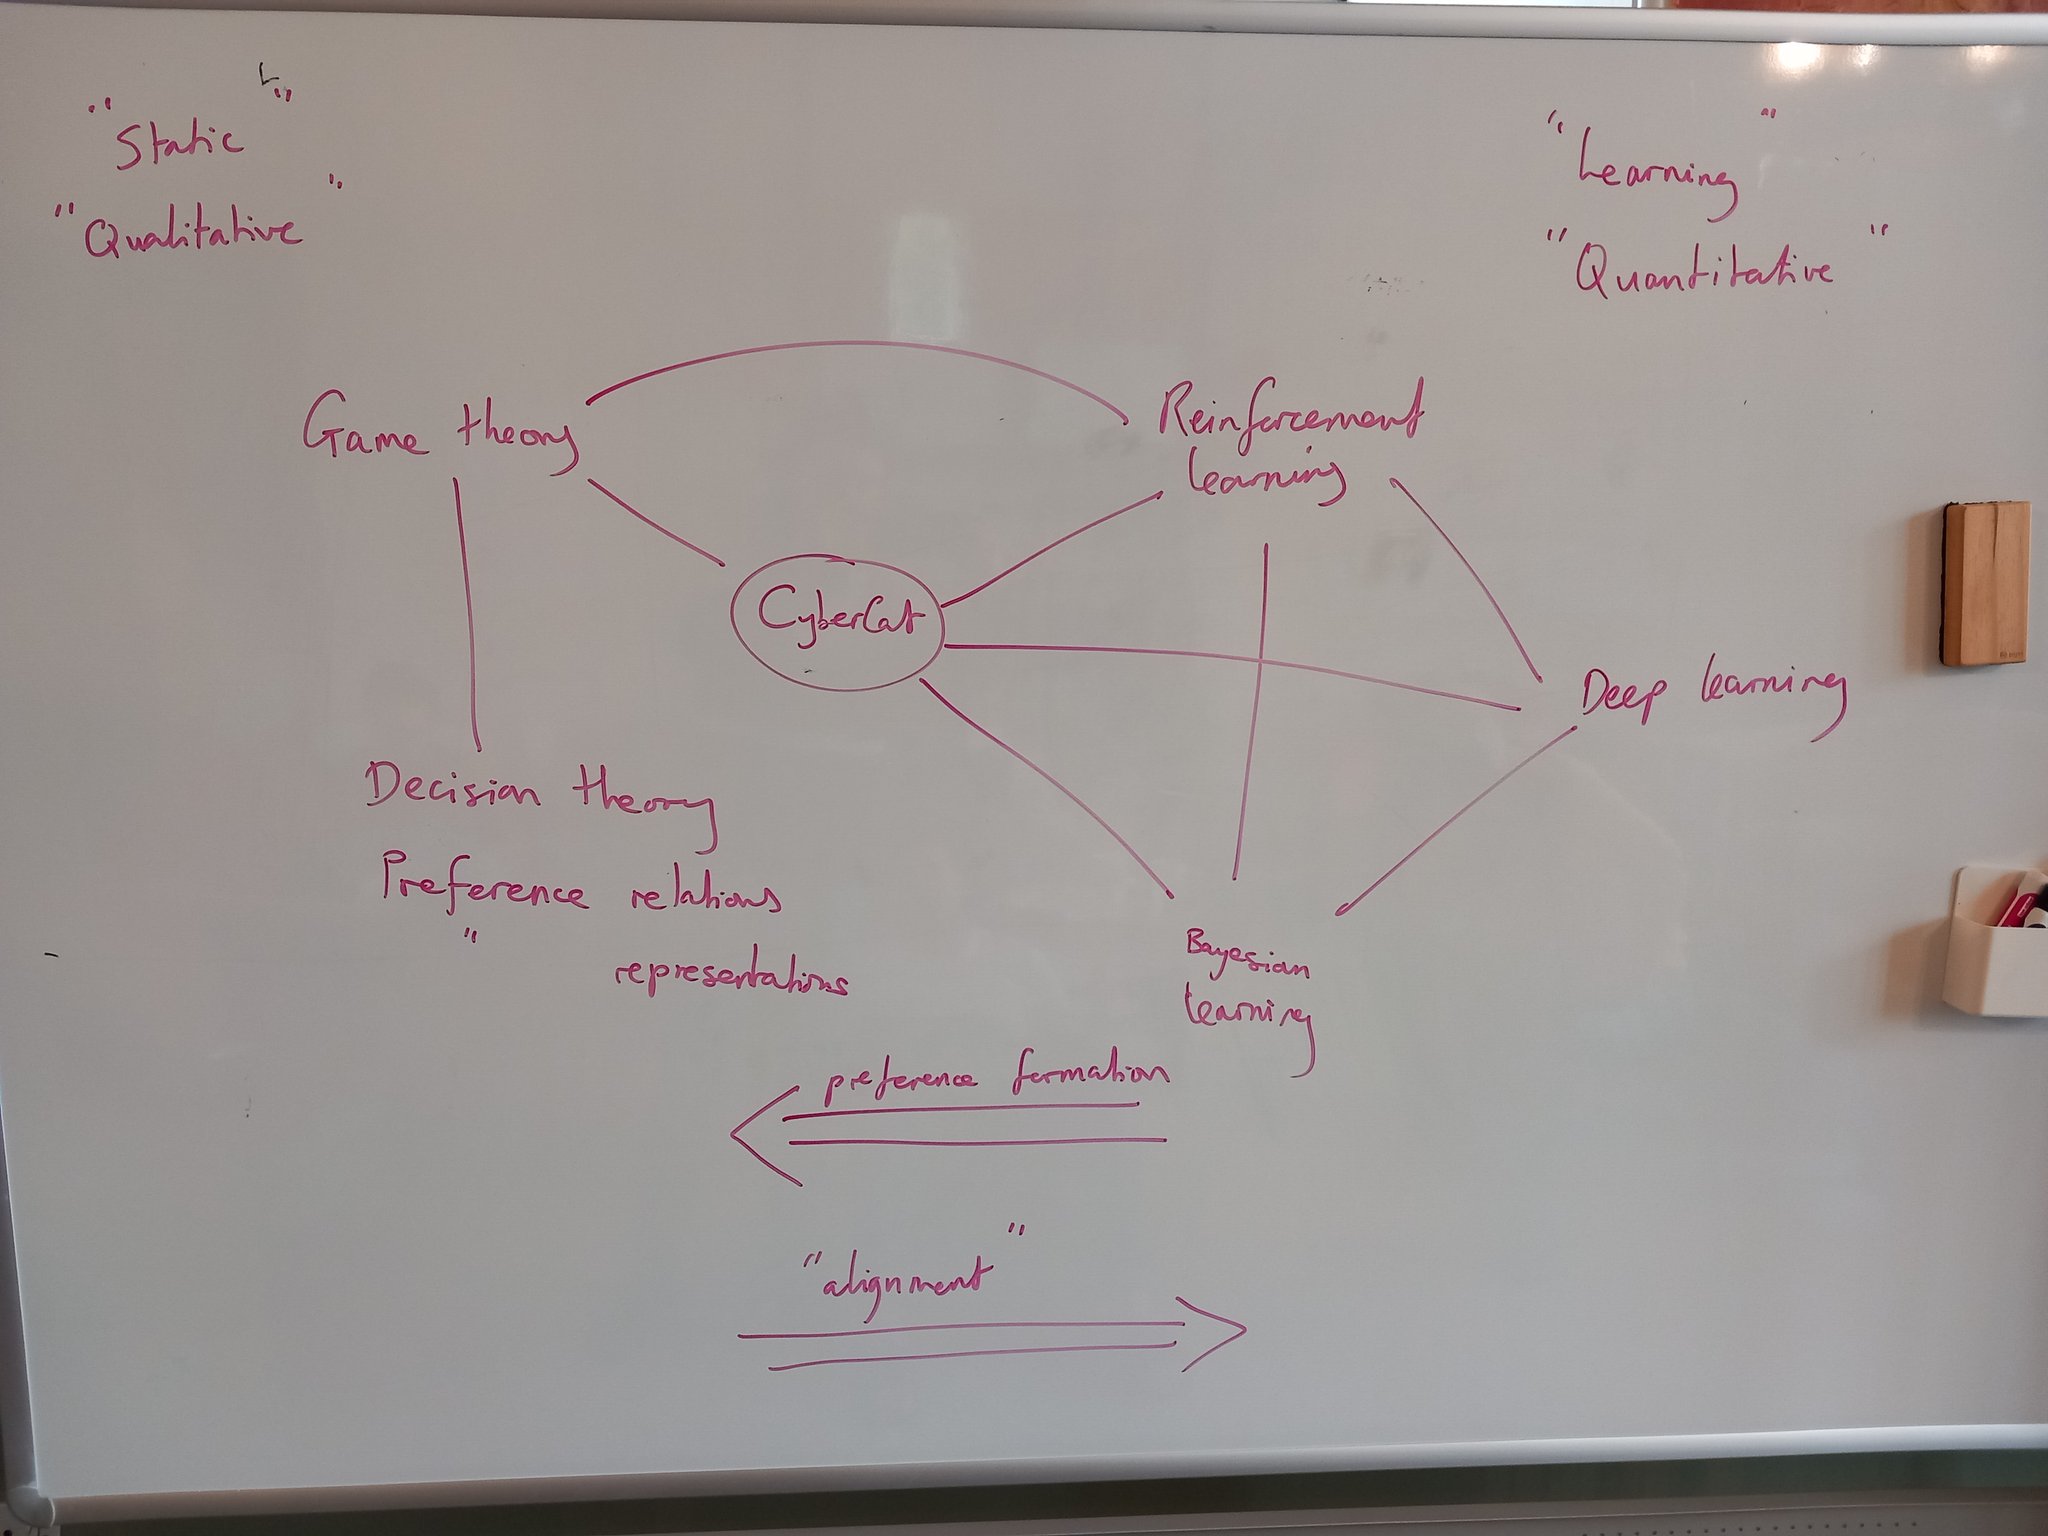 "Static"
"Qualitative"
"Learning"
"Quantitative"
Game theory
Reinforcement
learning
CyberCat
Deep learning
Decision theory
Preference relations
" representations
Bayesian
learning
preference formation
"alignment"